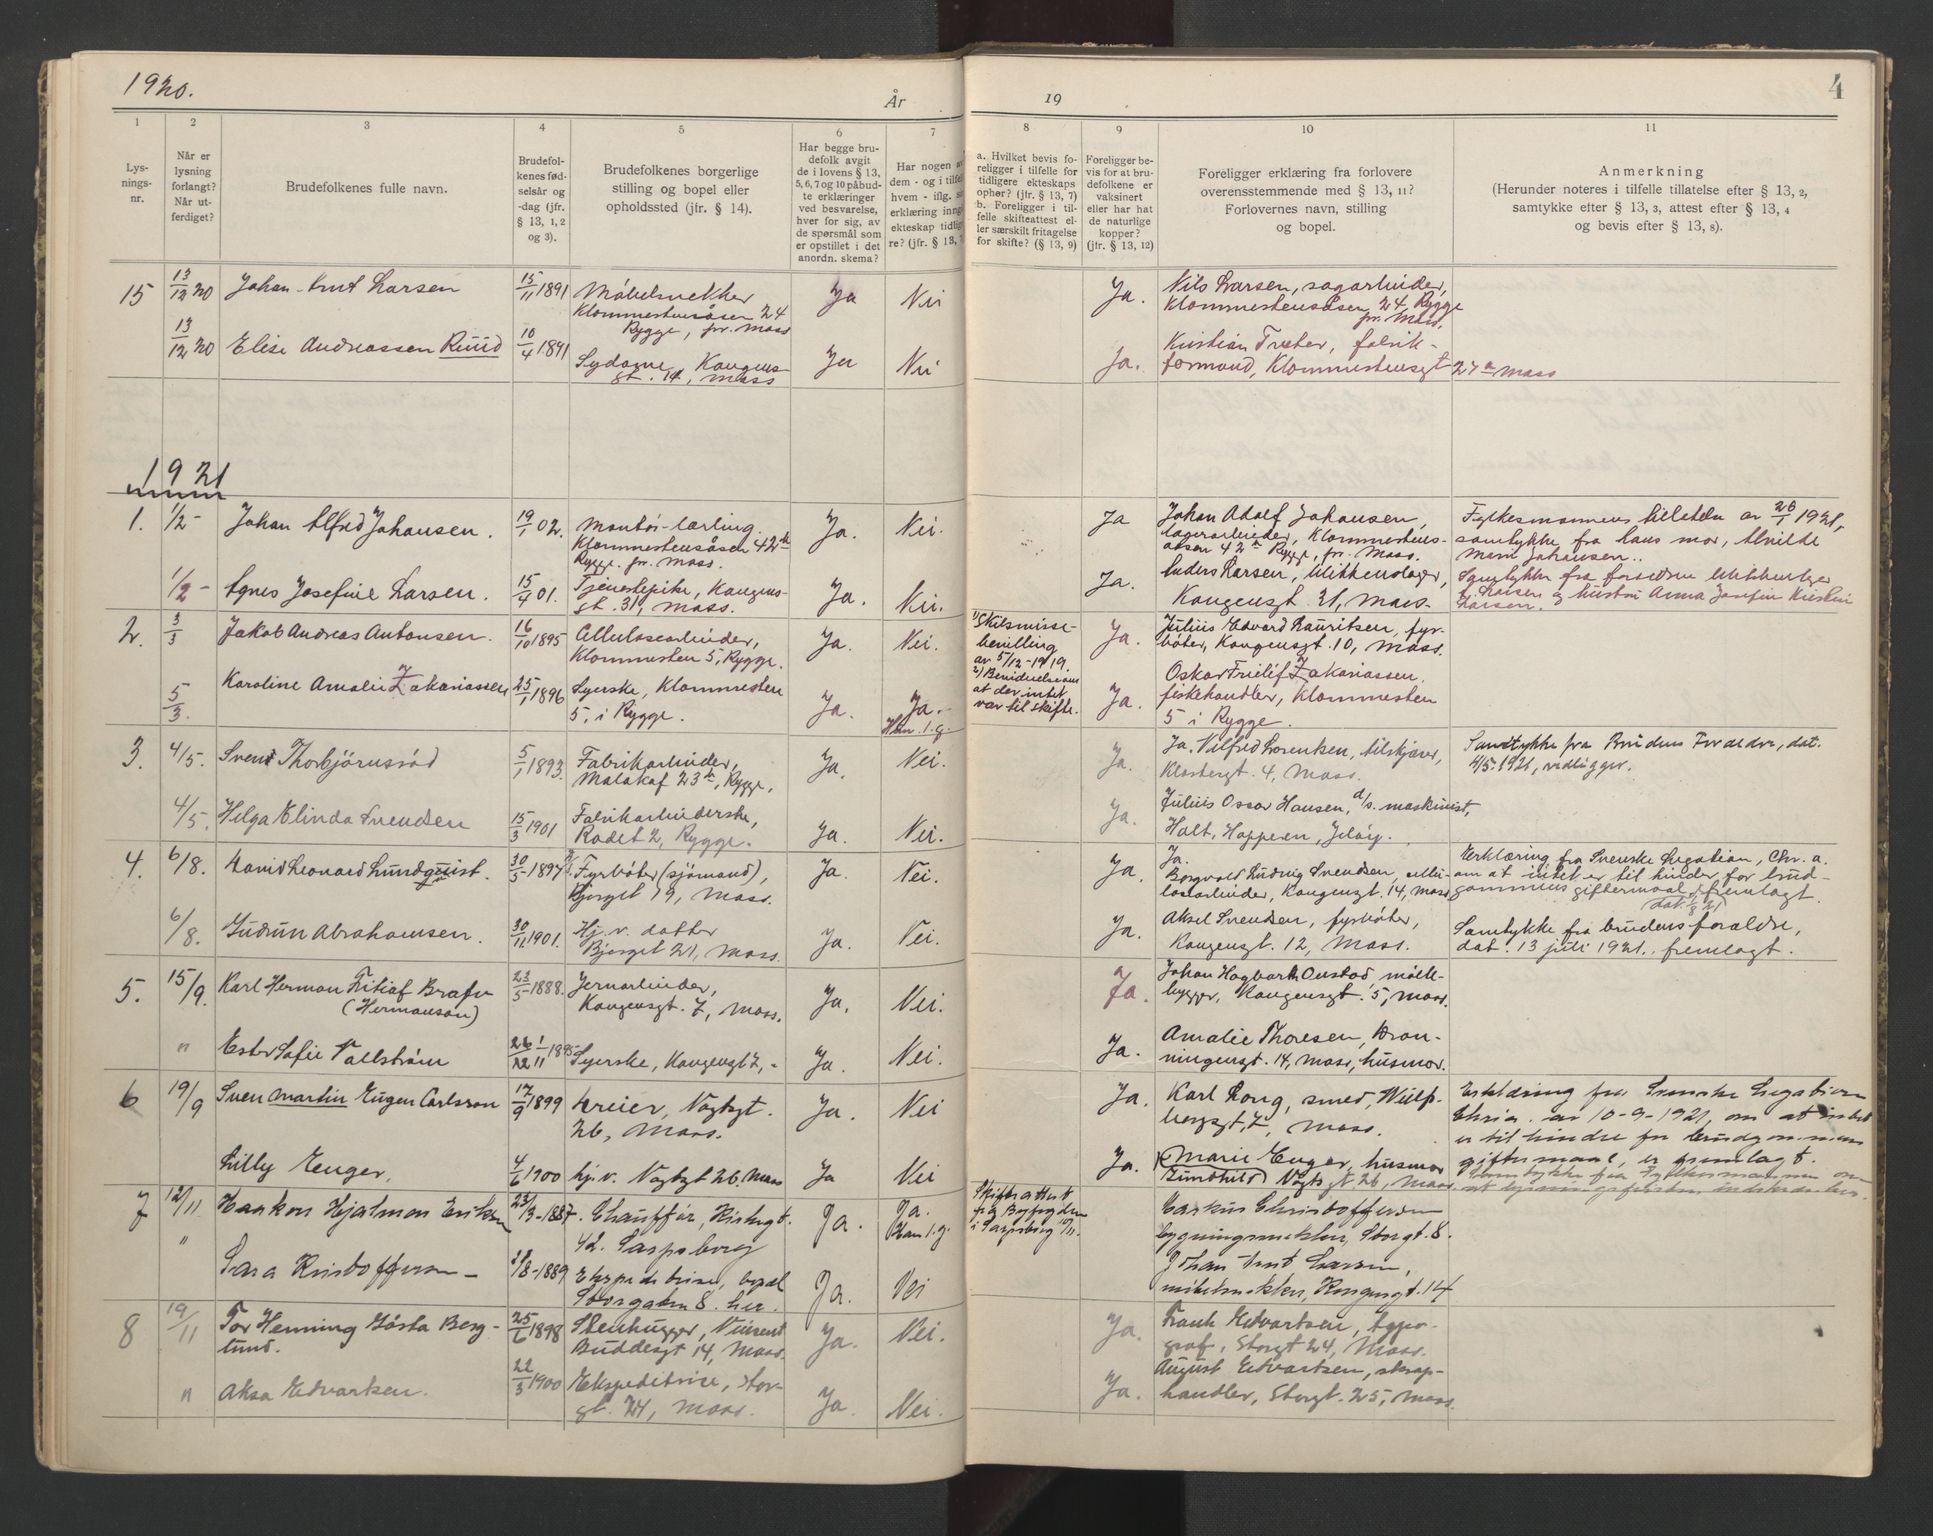 1920.
År
19
4
1
2
3
4
5
6
7
8
9
10
11
Lys-
nings-
nr.
Når er
lysning
forlangt?
Når ut-
ferdiget?
Brudefolkenes fulle navn.
Brudefol-
kenes fød-
selsår og
-dag (jfr.
§ 13, 1, 2
og 3).
Brudefolkenes borgerlige
stilling og bopel eller
opholdssted (jfr. § 14).
Har begge bru-
defolk avgit
de i lovens § 13,
5, 6, 7 og 10 påbud-
te erklæringer
ved besvarelse,
hver for sig, av
de spørsmål som
er opstillet i det
anordn. skema?
Har nogen av
dem - og i tilfel
hvem - iflg. s
erklæring inng
ekteskap tidlig
re? (jfr. § 13, 7
a. Hvilket bevis fo-
religger i tilfelle for
tidligere ekteskaps
ophør? (jfr. § 13, 7)
b. Foreligger i til-
felle skifteattest el-
ler særskilt fritagelse
for skifte? (§ 13, 9)
Foreligger be-
vis for at bru-
defolkene er
vaksinert
eller har hat
de naturlige
kopper?
(jfr. § 13, 12)
Foreligger erklæring fra forlovere
overensstemmende med § 13, 11?
Forlovernes navn, stilling
og bopel.
Anmerkning
(Herunder noteres i tilfelle tillatelse efter § 13, 2,
samtykke efter § 13, 3, attest efter § 13, 4
og bevis efter § 13, 8).
15 13/12 20 Johan Knut Larsen 15/11 1891 Møbelsnekker
Klommestensåsen 24
Rygge, pr. Moss Ja Nei Ja. Nils Larsen, sagarbeider,
Klommestensåsen 24 Rygge
pr. Moss.
13/12 20 Elise Andreassen Ruud 10/4 1891 Sydame, Kongens-
gt. 14, Moss Ja Nei Ja. Kristian Træter, fabrik-
formand, Klommestensgt 27 a Moss
1921
1. 1/2- Johan Alfred Johansen. 19/1 02. Montør-lærling
Klommestensåsen 42 b
Rygge. pr. Moss. Ja. Nei. Ja Johan Adolf Johansen,
lagerarbeider, Klommestens-
åsen 42 b Rygge, pr. Moss. Fylkesmannens tillatelse av 26/1 1921,
samtykke fra hans mor, Alvilde
Marie Johansen..
1/2- Agnes Josefine Larsen. 15/4 01. Tjenestepike, Kongens-
gt. 31, Moss. Ja. Nei. Ja. Anders Larsen, blikkenslager,
Kongensgt. 31, Moss. Samtykke fra forældrene blikkenslager
A. Larsen og hustru Anna Josefin Kristine
Larsen.
2. 3/3 Jakob Andreas Antonsen. 16/10 1895 Cellulosearbeider,
Klommesten 5, Rygge. Ja. Nei. 1) Skilsmisse-
bevilling
av 5/12-1919.
2) Bevidnelse om
at der intet
var til skifte. Ja. Julius Edvard Lauritsen, fyr-
bøter, Kongensgt. 10, Moss.
5/3. Karoline Amalie Zakariassen 25/1 1896 Syerske, Klommesten
5, i Rygge. Ja. Ja.-
Han. 1. g. Ja. Oskar Fritlif Zakariassen.
fiskehandler, Klommesten
5 i Rygge.
3. 4/5. Svend Thorbjørnsrød 5/1 1893. Fabrikarbeider,
Malakof 23 b, Rygge, Ja. Nei. Ja. Ja. Vilfred Lorentsen, tilskjærer,
Klostergt. 4, Moss. Samtykke fra Brudens Foreldre, dat.
4/5. 1921, vedligger.
4/5. Helga Elinda Svendsen 15/3 1901 Fabrikarbeiderske,
Rådet 2, Rygge. Ja. Nei. Ja. Julius Oscar Hansen, d/s. maskinist,
Holt, Hoppern, Jeløy.
4. 6/8. David Leonard Lundquist. 30/5-1897 Fyrbøter (sjømand),
Bjerget 19, Moss. Ja. Nei. Ja. Ja.
Borgvald Ludvig Svendsen, cellu-
losearbeider, Kongensgt. 14, Moss Erklæring fra Svenske Legation, Chr. a.
om at intet er til hinder for brud-
gommens giftermaal, fremlagt.
dat. 1/8 21
6/8. Gudrun Abrahamsen. 30/11 1901. Hj.v. datter
Bjerget 21, Moss. Ja. Nei. Ja. Aksel Svendsen, fyrbøter,
Kongensgt. 12, Moss. Samtykke fra brudens forældre,
dat. 13 juli 1921. fremlagt.
5. 15/9. Karl Herman Fritiof Brafn
(Hermanson) 23/5 1888. Jernarbeider,
Kongensgt. 7, Moss. Ja. Nei. Ja. Johan Hagbart Onstad, møbl-
bygger, Kongensgt. 5, Moss.
" Ester Sofie Tallstrøm 26/22 1/11 1895 Syerske, Kongensgt 7, - Ja. Nei. Ja. Amalie Thoresen, Dron-
ningensgt. 14, Moss, husmor.
6 19/9 Sven Martin Eugen Carlsson 17/9 1899 Dreier, Vogtsgt.
26, Moss. Ja. Nei Ja. Karl Long, smed, Wulfs-
bergsgt. 7, Moss. Erklæring fra Svenske Legation
Chria. av 10-9-1921, om at intet
er til hindre for brudgommens
giftermaal, er fremlagt.
Lilly Enger. 4/6 1900 hj.v. Vogtsgt 26. Moss Ja Nei Ja. Marie Enger, husmor
Gundhild Vogts gt. 26, Moss. Samtykke fra Fylkesmannen om
at lysningsfristen indskrænkes.
7 12/11 Haakon Hjalmar Eriksen 23/3-1887. Chauffør, Kirkegt.
42. Sarpsborg Ja. Ja.
Han 1. g. Skifteattest
fra Byfogden
i Sarpsborg 10/11. Markus Christoffersen
bygningssnekker, Storgt. 8.
" Sara Kristoffersen - 21/8-1889 Ekspeditrise, bopæl
Storgaten 8. her. Ja. Nei Johan Knut Larsen,
møbelsnekker, Kongensgt. 14
8 19/11 Tor Henning Gøsta Berg-
lund. 25/6 1898 Stenhugger, Vincent
Buddesgt 14, Moss. Ja. Nei. Ja. Frank Edvartsen, typo-
graf, Storgt 24, Moss.
" Aksa Edvartsen. 22/3 1900 Ekspeditrise, Stor-
gt. 24, Moss. Ja. Nei. Ja. August Edvartsen, skrap-
handler, Storgt. 25, Moss.